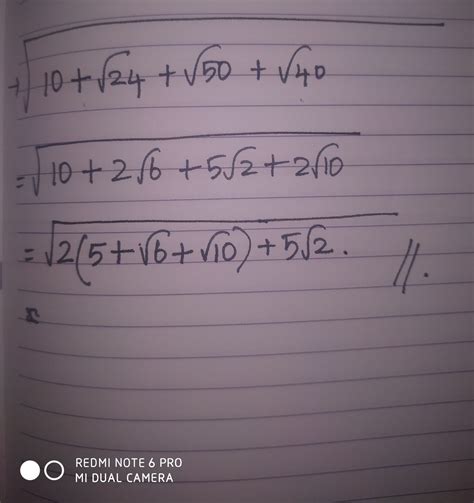 +√10 + √24 + √50 + √40
= √10 + 2√6 + 5√2 + 2√10
= √2(5 + √6 + √10) + 5√2 . //.
REDMI NOTE 6 PRO
MI DUAL CAMERA